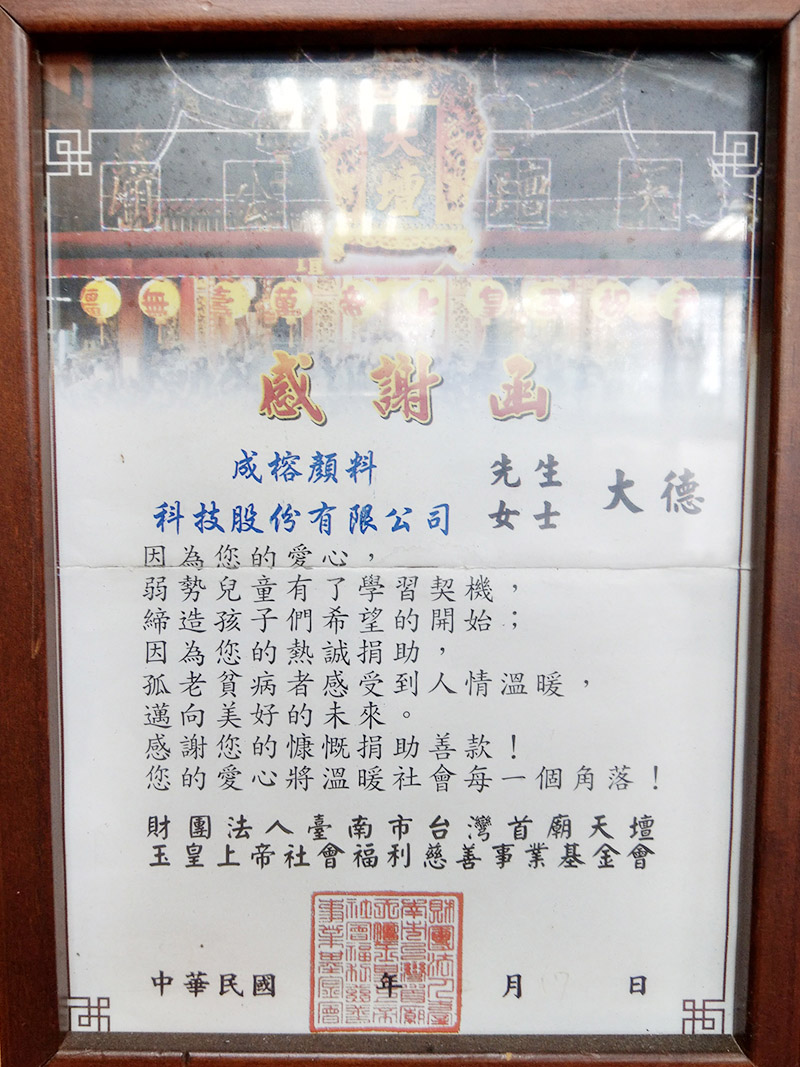 天
壇
感謝函
成榕顏料
科技股份有限公司
先生
女士
大德
因為您的愛心，
弱勢兒童有了學習契機，
締造孩子們希望的開始；
因為您的熱誠捐助，
孤老貧病者感受到人情溫暖，
邁向美好的未來。
感謝您的慷慨捐助善款！
您的愛心將溫暖社會每一個角落！
財團法人臺南市台灣首廟天壇
玉皇上帝社會福利慈善事業基金會
中華民國 年 月 日